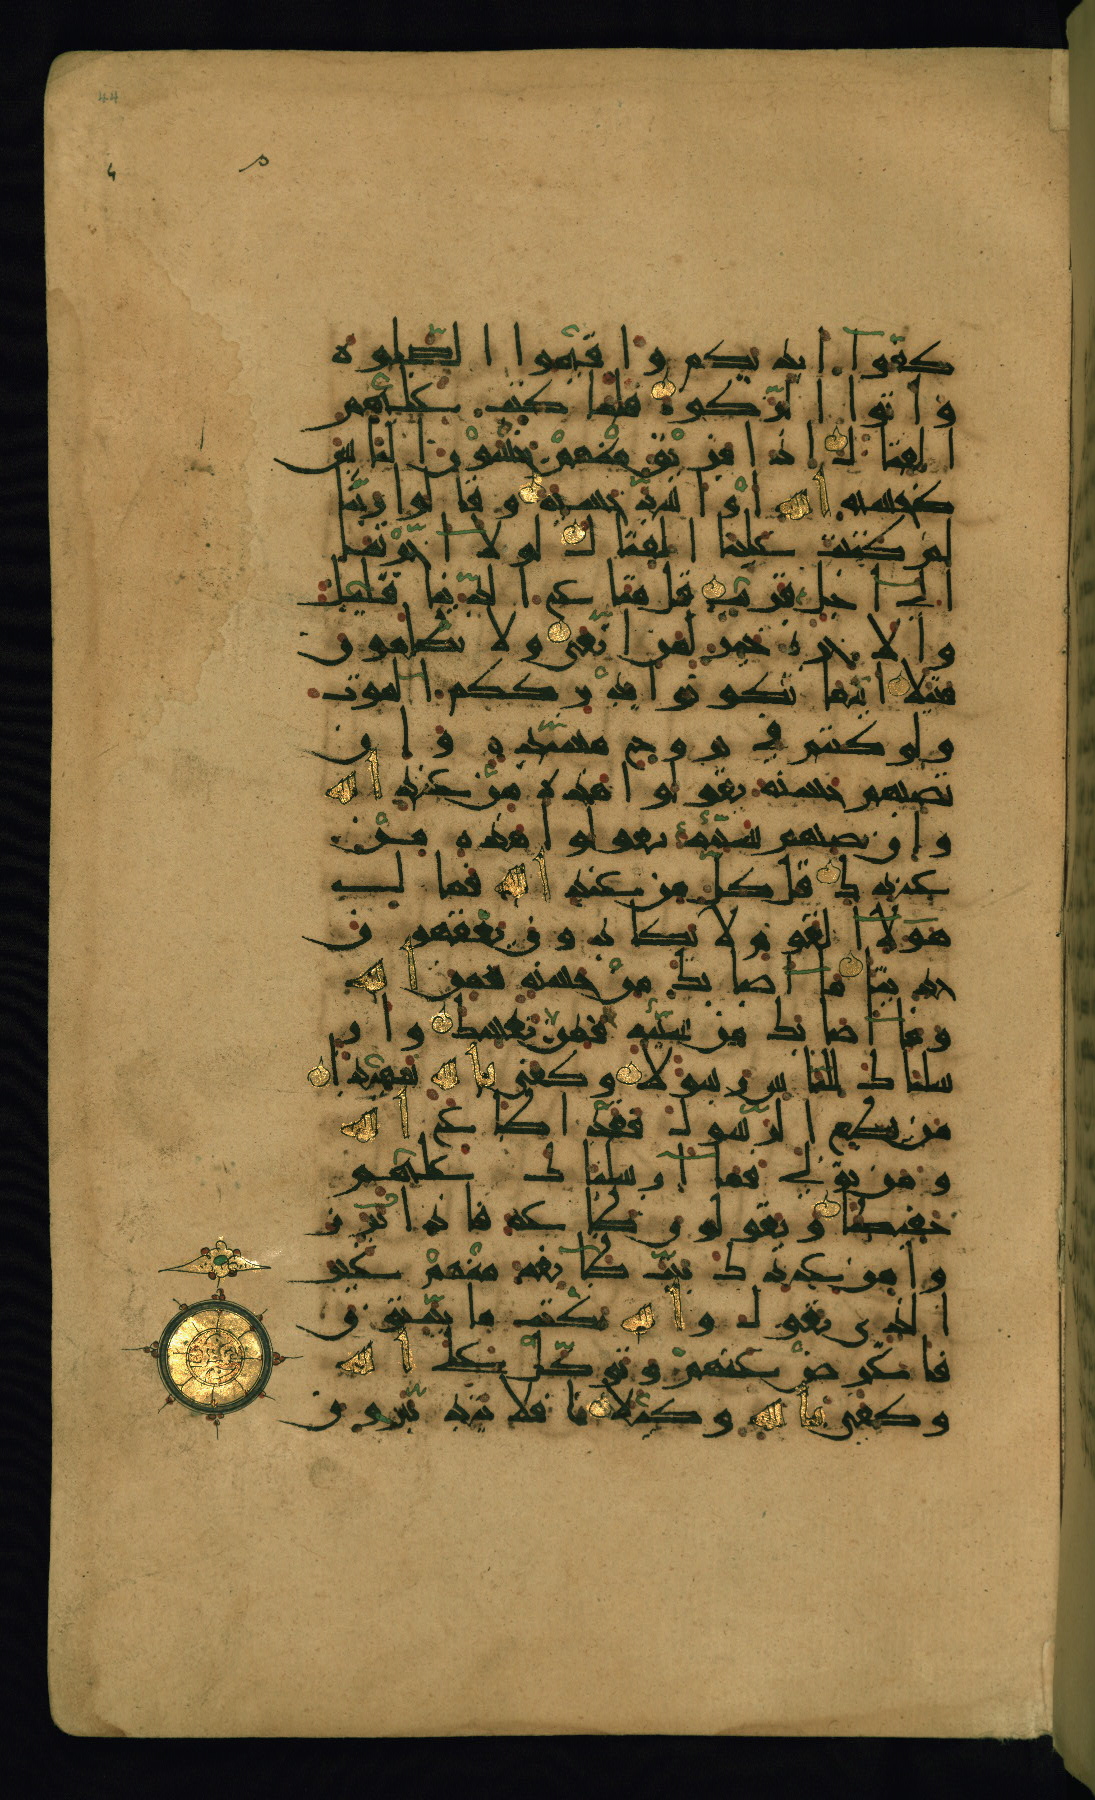 كفوا ايديكم واقيموا الصلوه
واتوا الزكوه فلما كتب عليهم
القتال اذا فريق منهم يخشون الناس
كخشيه الله او اشد خشيه وقالوا ربنا
لم كتبت علينا القتال لولا اخرتنا
الى اجل قريب قل متاع الدنيا قليل
والاخره خير لمن اتقى ولا تظلمون
فتيلا اينما تكونوا يدرككم الموت
ولو كنتم في بروج مشيده وان
تصبهم حسنه يقولوا هذه من عند الله
وان تصبهم سيئه يقولوا هذه من
عندك قل كل من عند الله فمال
هولا القوم لا يكادون يفقهون
حديثا ما اصابك من حسنه فمن الله
وما اصابك من سيئه فمن نفسك وار
سلناك للناس رسولا وكفى بالله شهيدا
من يطع الرسول فقد اطاع الله
ومن تولى فما ارسلناك عليهم
حفيظا ويقولون طاعه فاذا برزو
ا من عندك بيت طايفه منهم غير
الذي تقول والله يكتب ما يبيتون
فاعرض عنهم وتوكل على الله
وكفى بالله وكيلا افلا يتدبرون